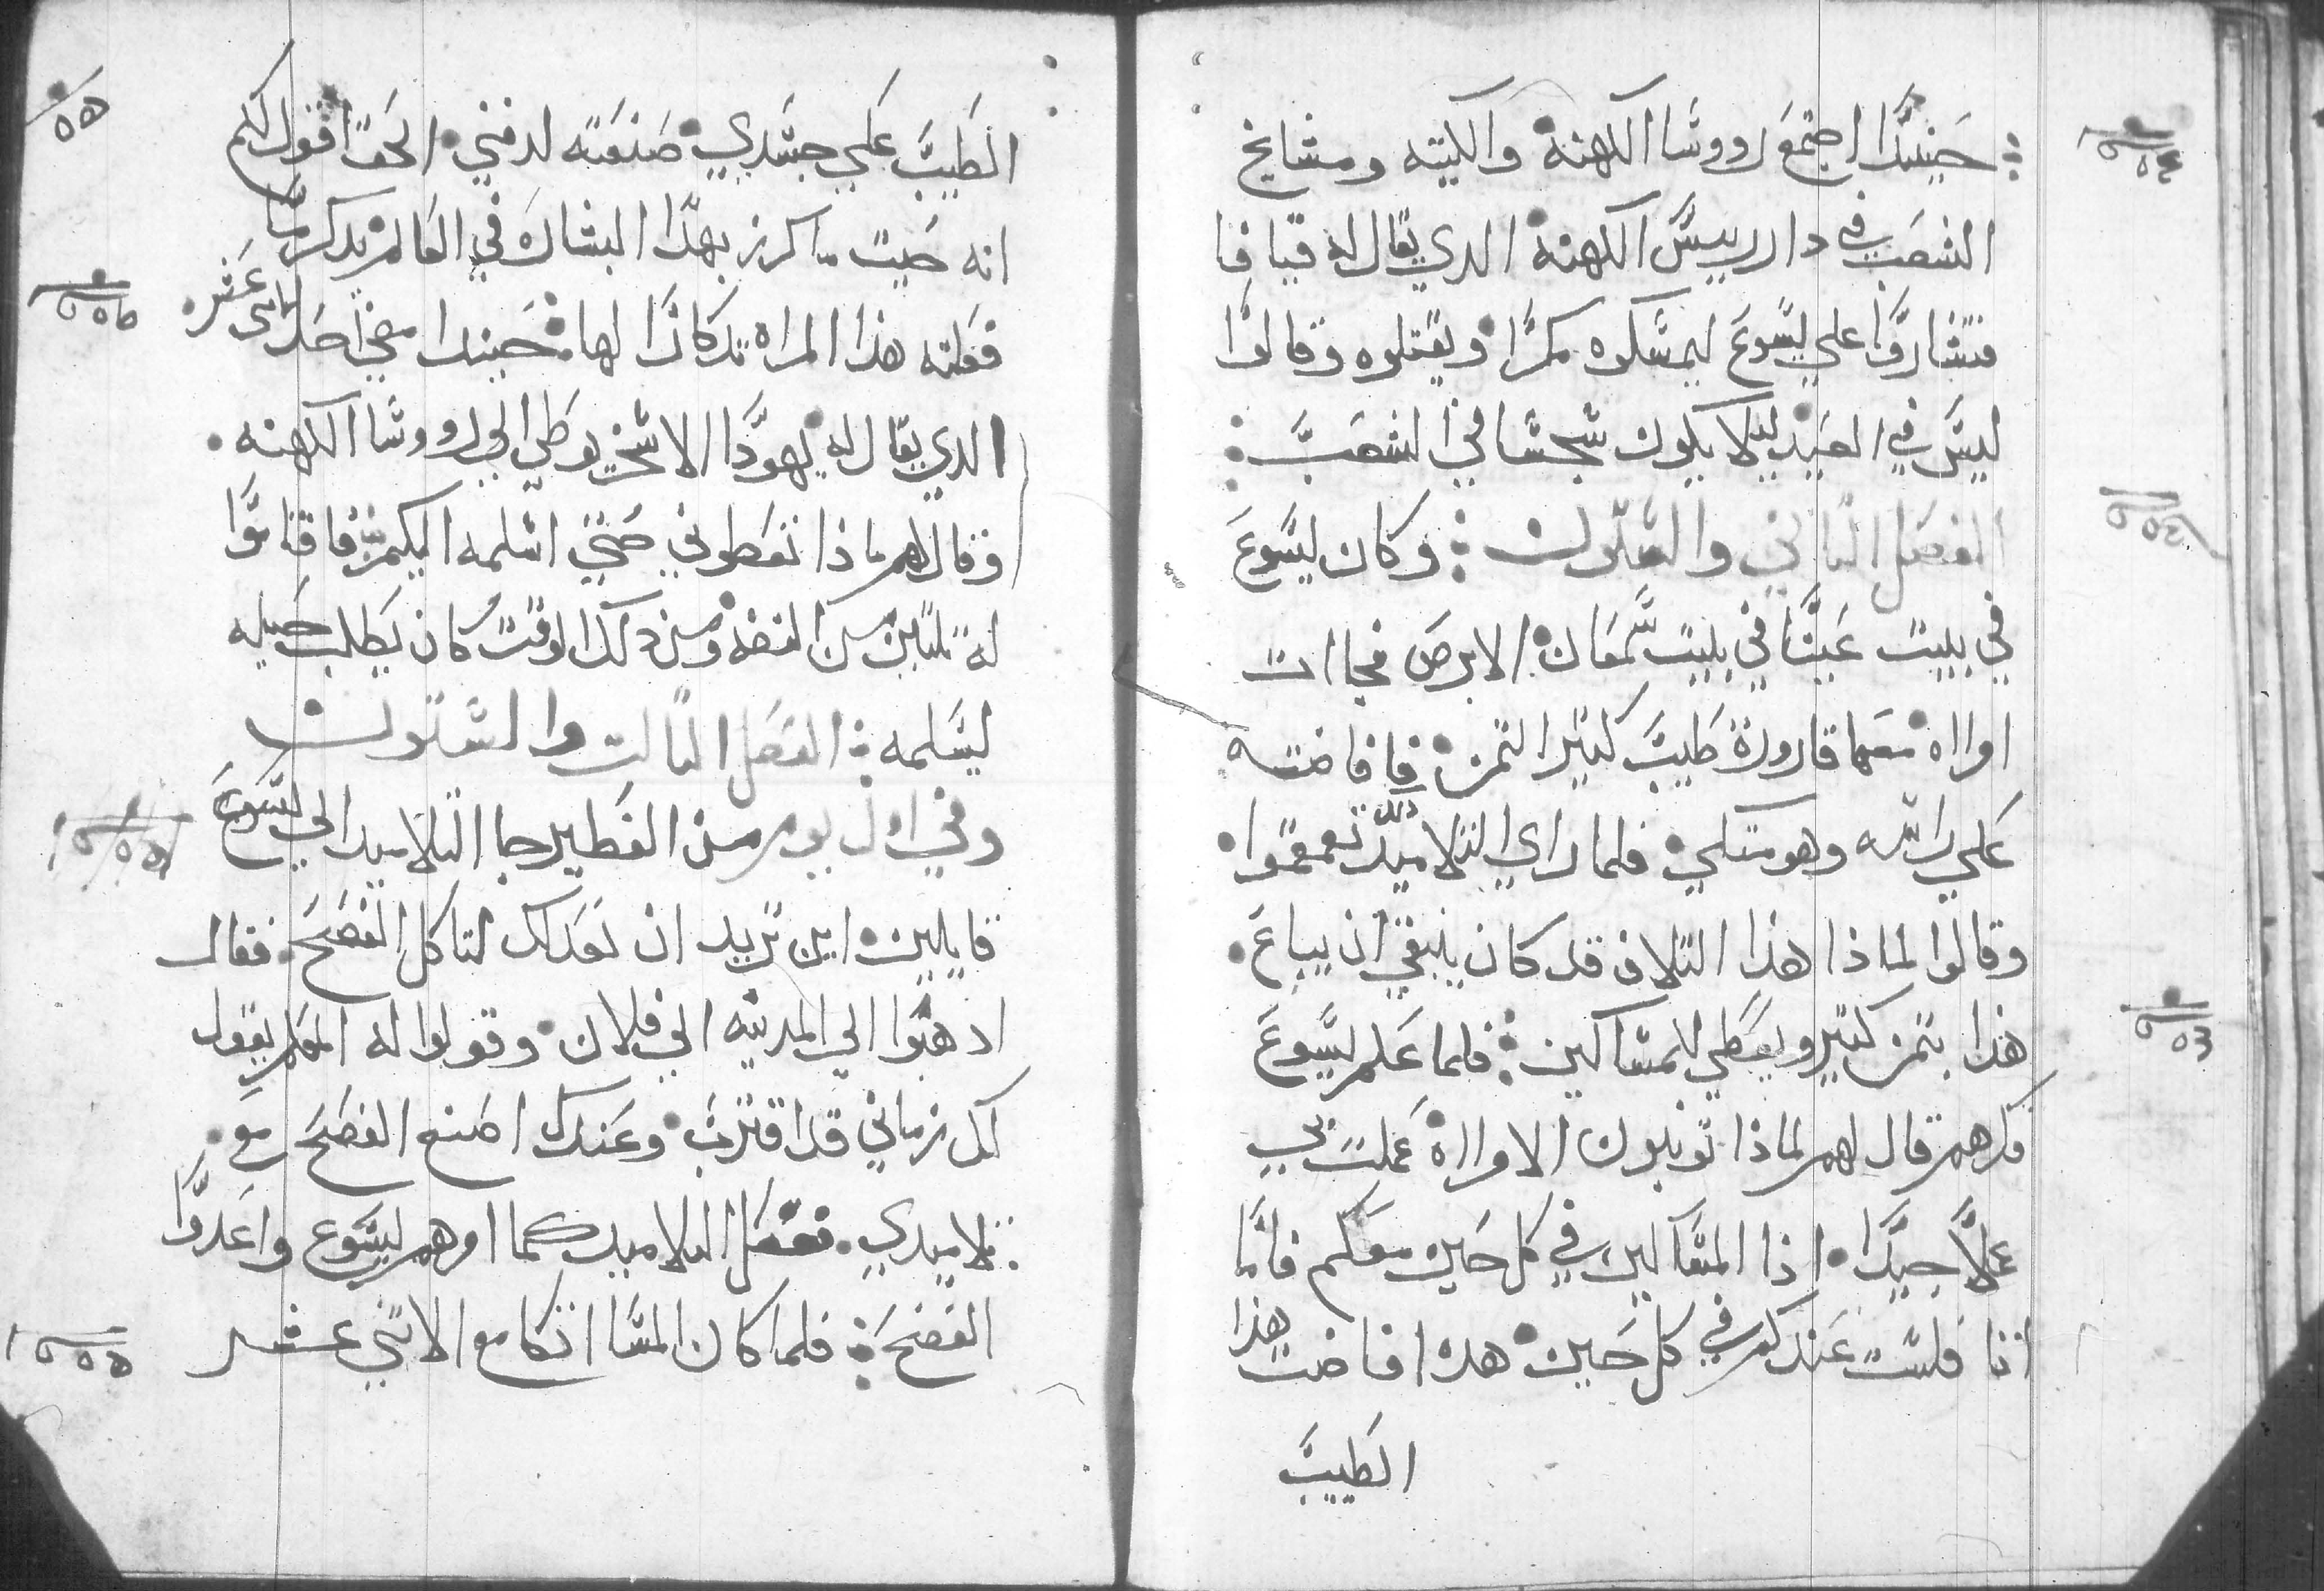 حينيدا اجتمع رووسا الكهنة والكتبه ومشايخ
الشعب في دار رييس الكهنة الدي يقال له قيافا
فتشاروا علي يسوع ليمسكوه مكرا ويقتلوه وقالوا
ليس في العيد ليلا يكون شجسا في الشعب
الفصل التاني والستون وكان يسوع
في بييت عنيا في بيت سمعان الابرص فجاات
اوااه معها قارورة طيب كتير التمن فافاضته
علي راسه وهو متكي فلما راي التلاميد دلك تعمقموا
وقالوا لماذا هذا التلاف قد كان ينبغي ان يباع
هذا بتمن كتير ويعطي للمساكين فلما علم يسوع
فكرهم قال لهم لماذا تونبون الاوااه عملت بي
عملا جيدا اذا المساكين في كل حين معكم فانما
انا فلست عندكم في كل حين هده افاضت هذا
الطيب
الطيب علي جسدي صنعته لدفني الحق اقول لكم
انه حيت ما كرز بهدا البشاره في العالم يدكر ما
فعلته هذا المراه تدكارا لها حينيدا مضي احد الاتني عشر
الدي يقال له يهودا الاسخريوطي الي رووسا الكهنه
وقال لهم ماذا تعطوني حتي اسلمه اليكم فاقاموا
له تلتين من الفضه ومن دلك الوقت كان يطلب حيله
ليسلمه الفصل التالت والستون
وفي اول يوم من الفطير جا التلاميد الي يسوع
قايلين اين تريد ان نعد لك لتاكل الفصح فقال
ادهبوا الي المدينه الي فلان وقولوا له المعلم يقول
لك زماني قد اقترب وعندك اصنع الفصح مع
تلاميدي ففعل التلاميد كما اوهم يسوع واعدوا
الفصح فلما كان المسا اتكا مع الاتني عشر